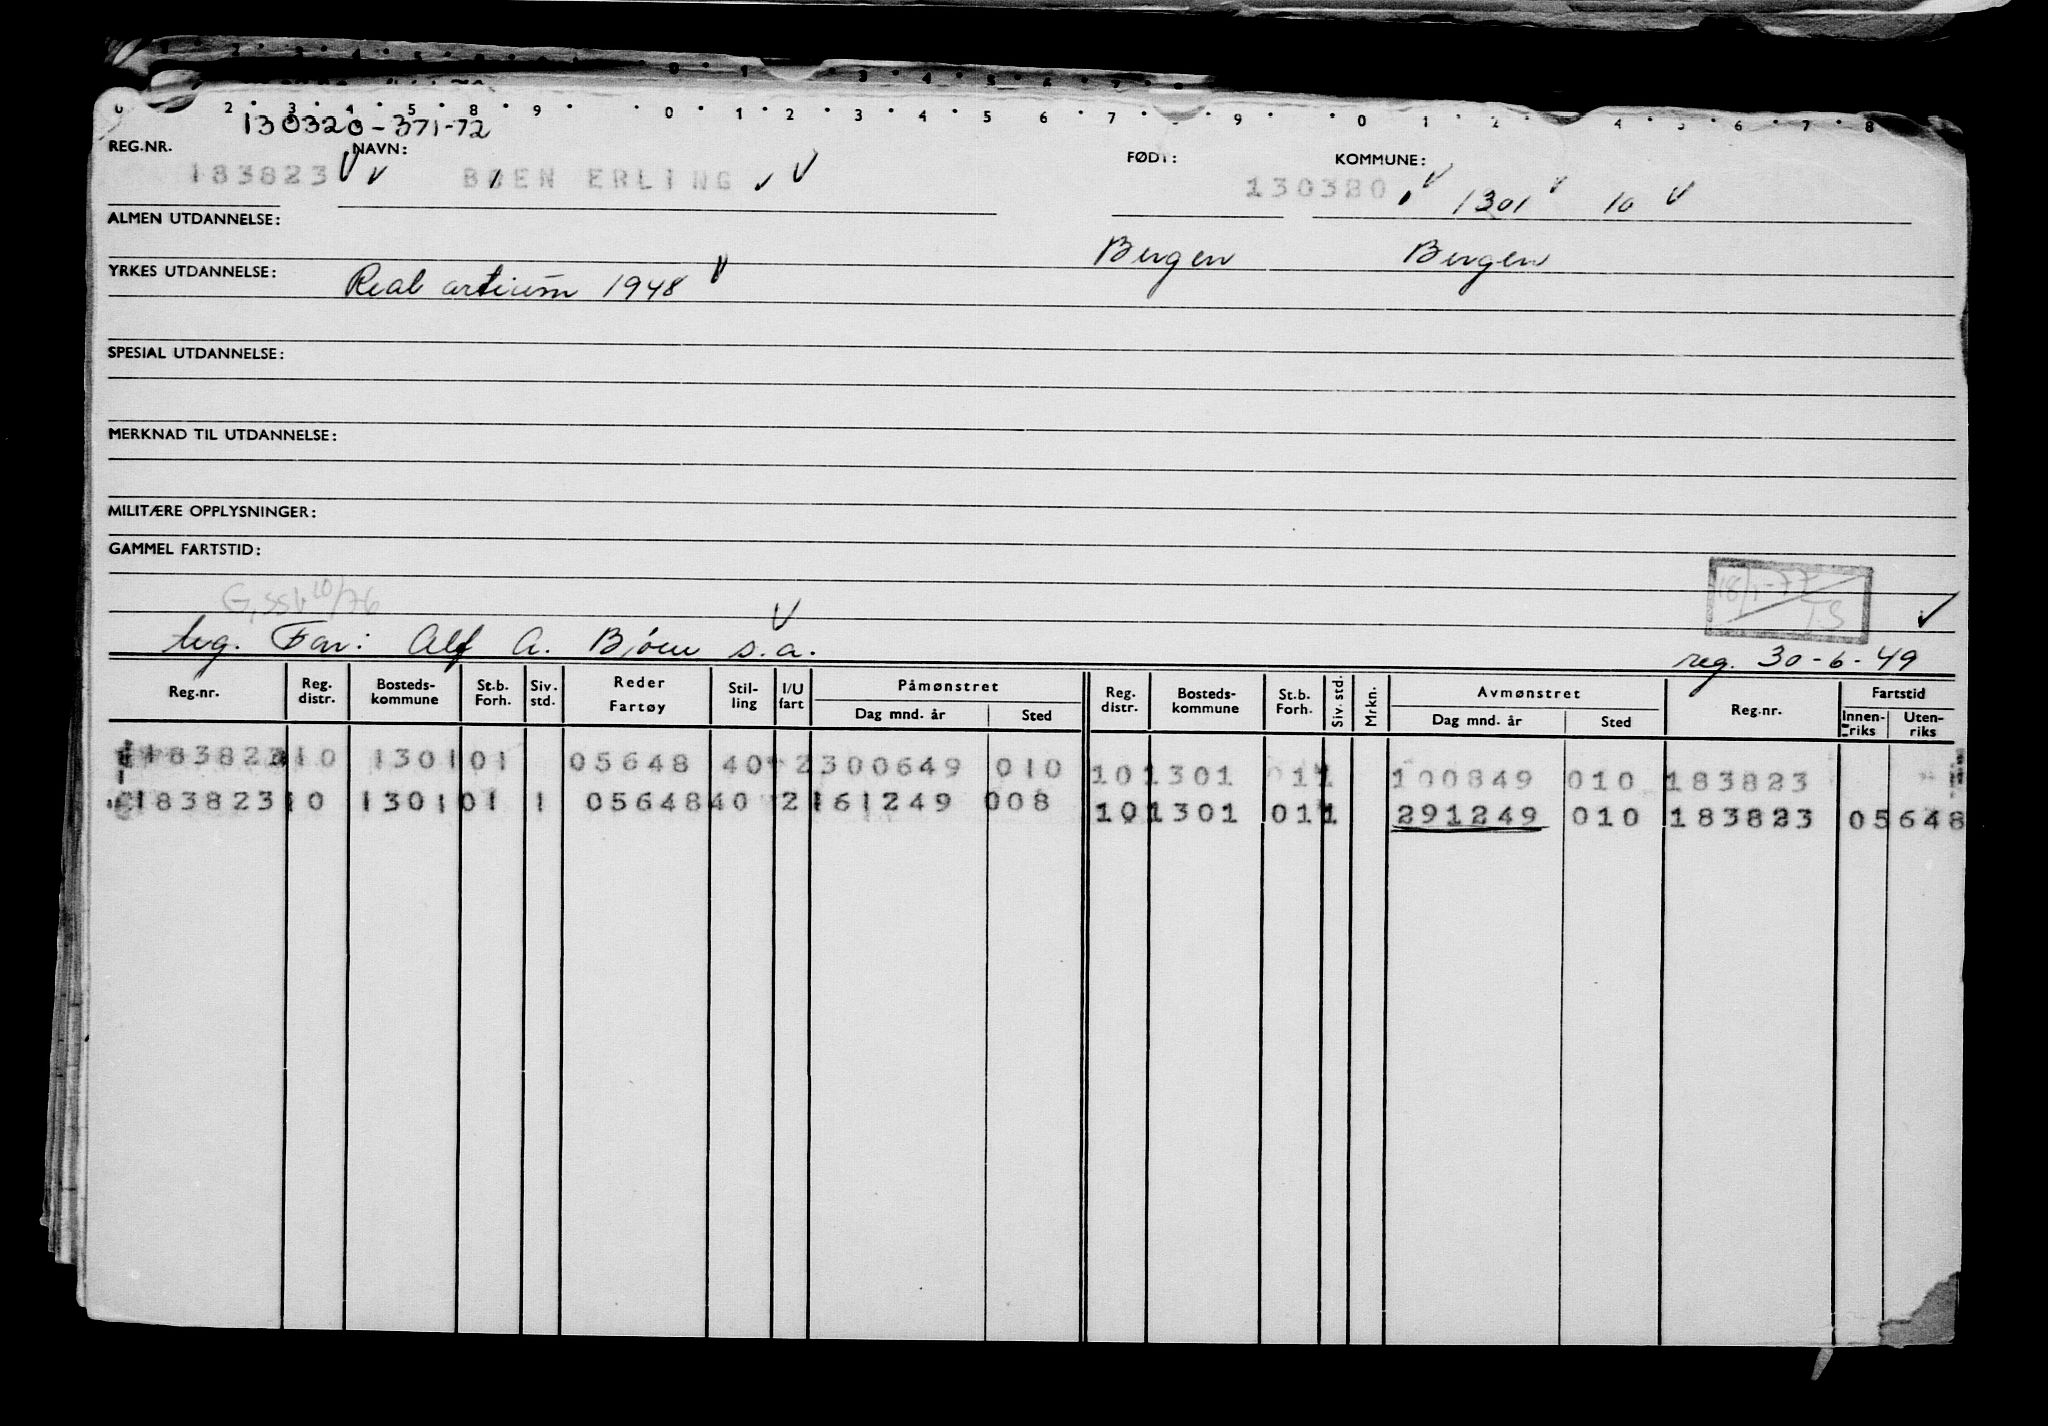 130320-371-72
REG.NR. NAVN: FØDT: KOMMUNE:
183823 BØEN ERLING 130320 1301 10
ALMEN UTDANNELSE:
Bergen Bergen
YRKES UTDANNELSE: Real artium 1948
SPESIAL UTDANNELSE:
MERKNAD TIL UTDANNELSE:
MILITÆRE OPPLYSNINGER:
GAMMEL FARTSTID:
18/1-77
TS
Far: Alf A. s.a. reg. 30-6-49
Reg.nr. Reg. distr. Bosteds-kommune St.b. Forh. Siv. std. Reder Fartøy Stil-ling I/U fart Påmønstret Dag mnd. år Sted Reg. distr. Bosteds-kommune St.b. Forh. Siv. std. Mrkn. Avmønstret Dag mnd. år Sted Reg.nr. Fartstid Innen-riks Uten-riks
183823 10 1301 01 05648 40 2 300649 010 10 1301 01 1 100849 010 183823
183823 10 1301 01 1 05648 40 2 161249 008 10 1301 01 1 291249 010 183823 05648